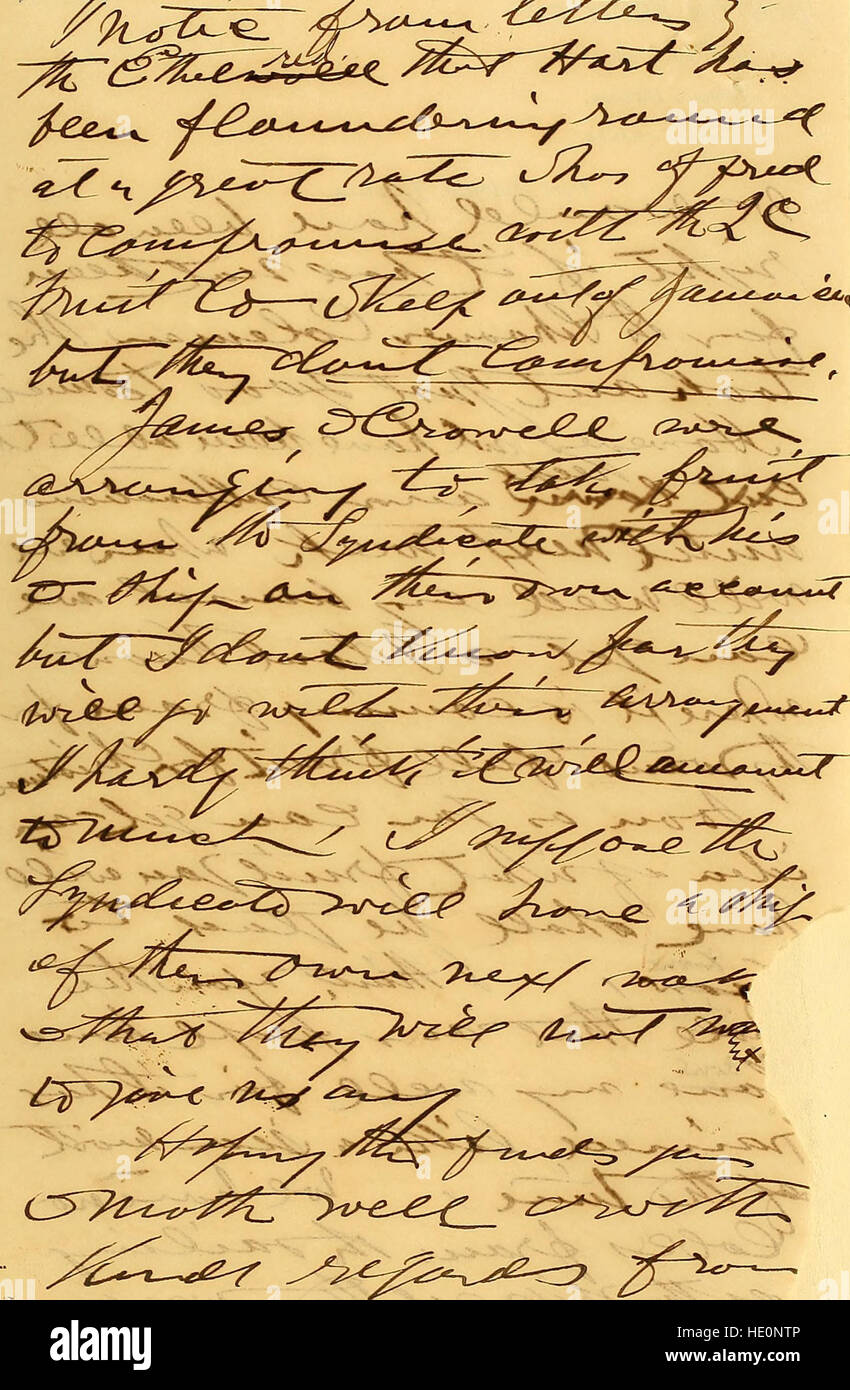 I notice from letters
the Ethelred that Hart has
been floundering round
at a great rate & has offred
to compromise with the
Fruit Co & Keep out of Jamaica
but they dont compromise.
James & Crowell were
arranging to take fruit
from the Syndicate with his
& ship on their own account
but I dont Know far they
will go with their arrangement
I hardly think it will amount
to much, I suppose the
Syndicate will have a ship
of their own next week
& that they will not
to give us any
Hoping this finds you
& Moth well & with
Kind regards from
alamy
Image ID: HE0NTP
www.alamy.com